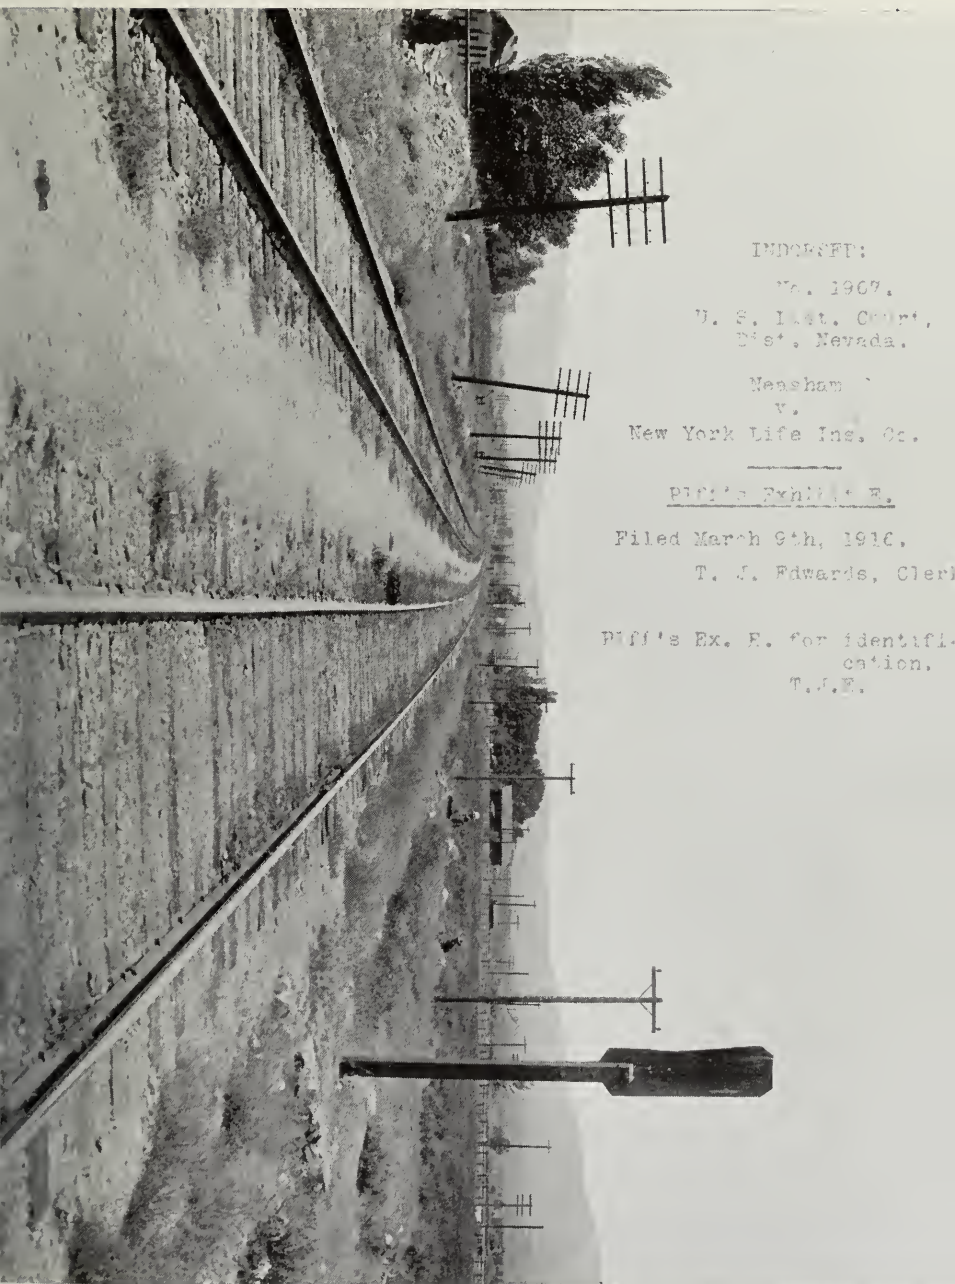 INDORSED:
No. 1967.
U. S. Dist. Court,
Dist. Nevada.
Neasham
v.
New York Life Ins. Co.
Plff's Exhibit E.
Filed March 9th, 1916.
T. J. Edwards, Clerk
Plff's Ex. E. for identifi-
cation.
T.J.E.